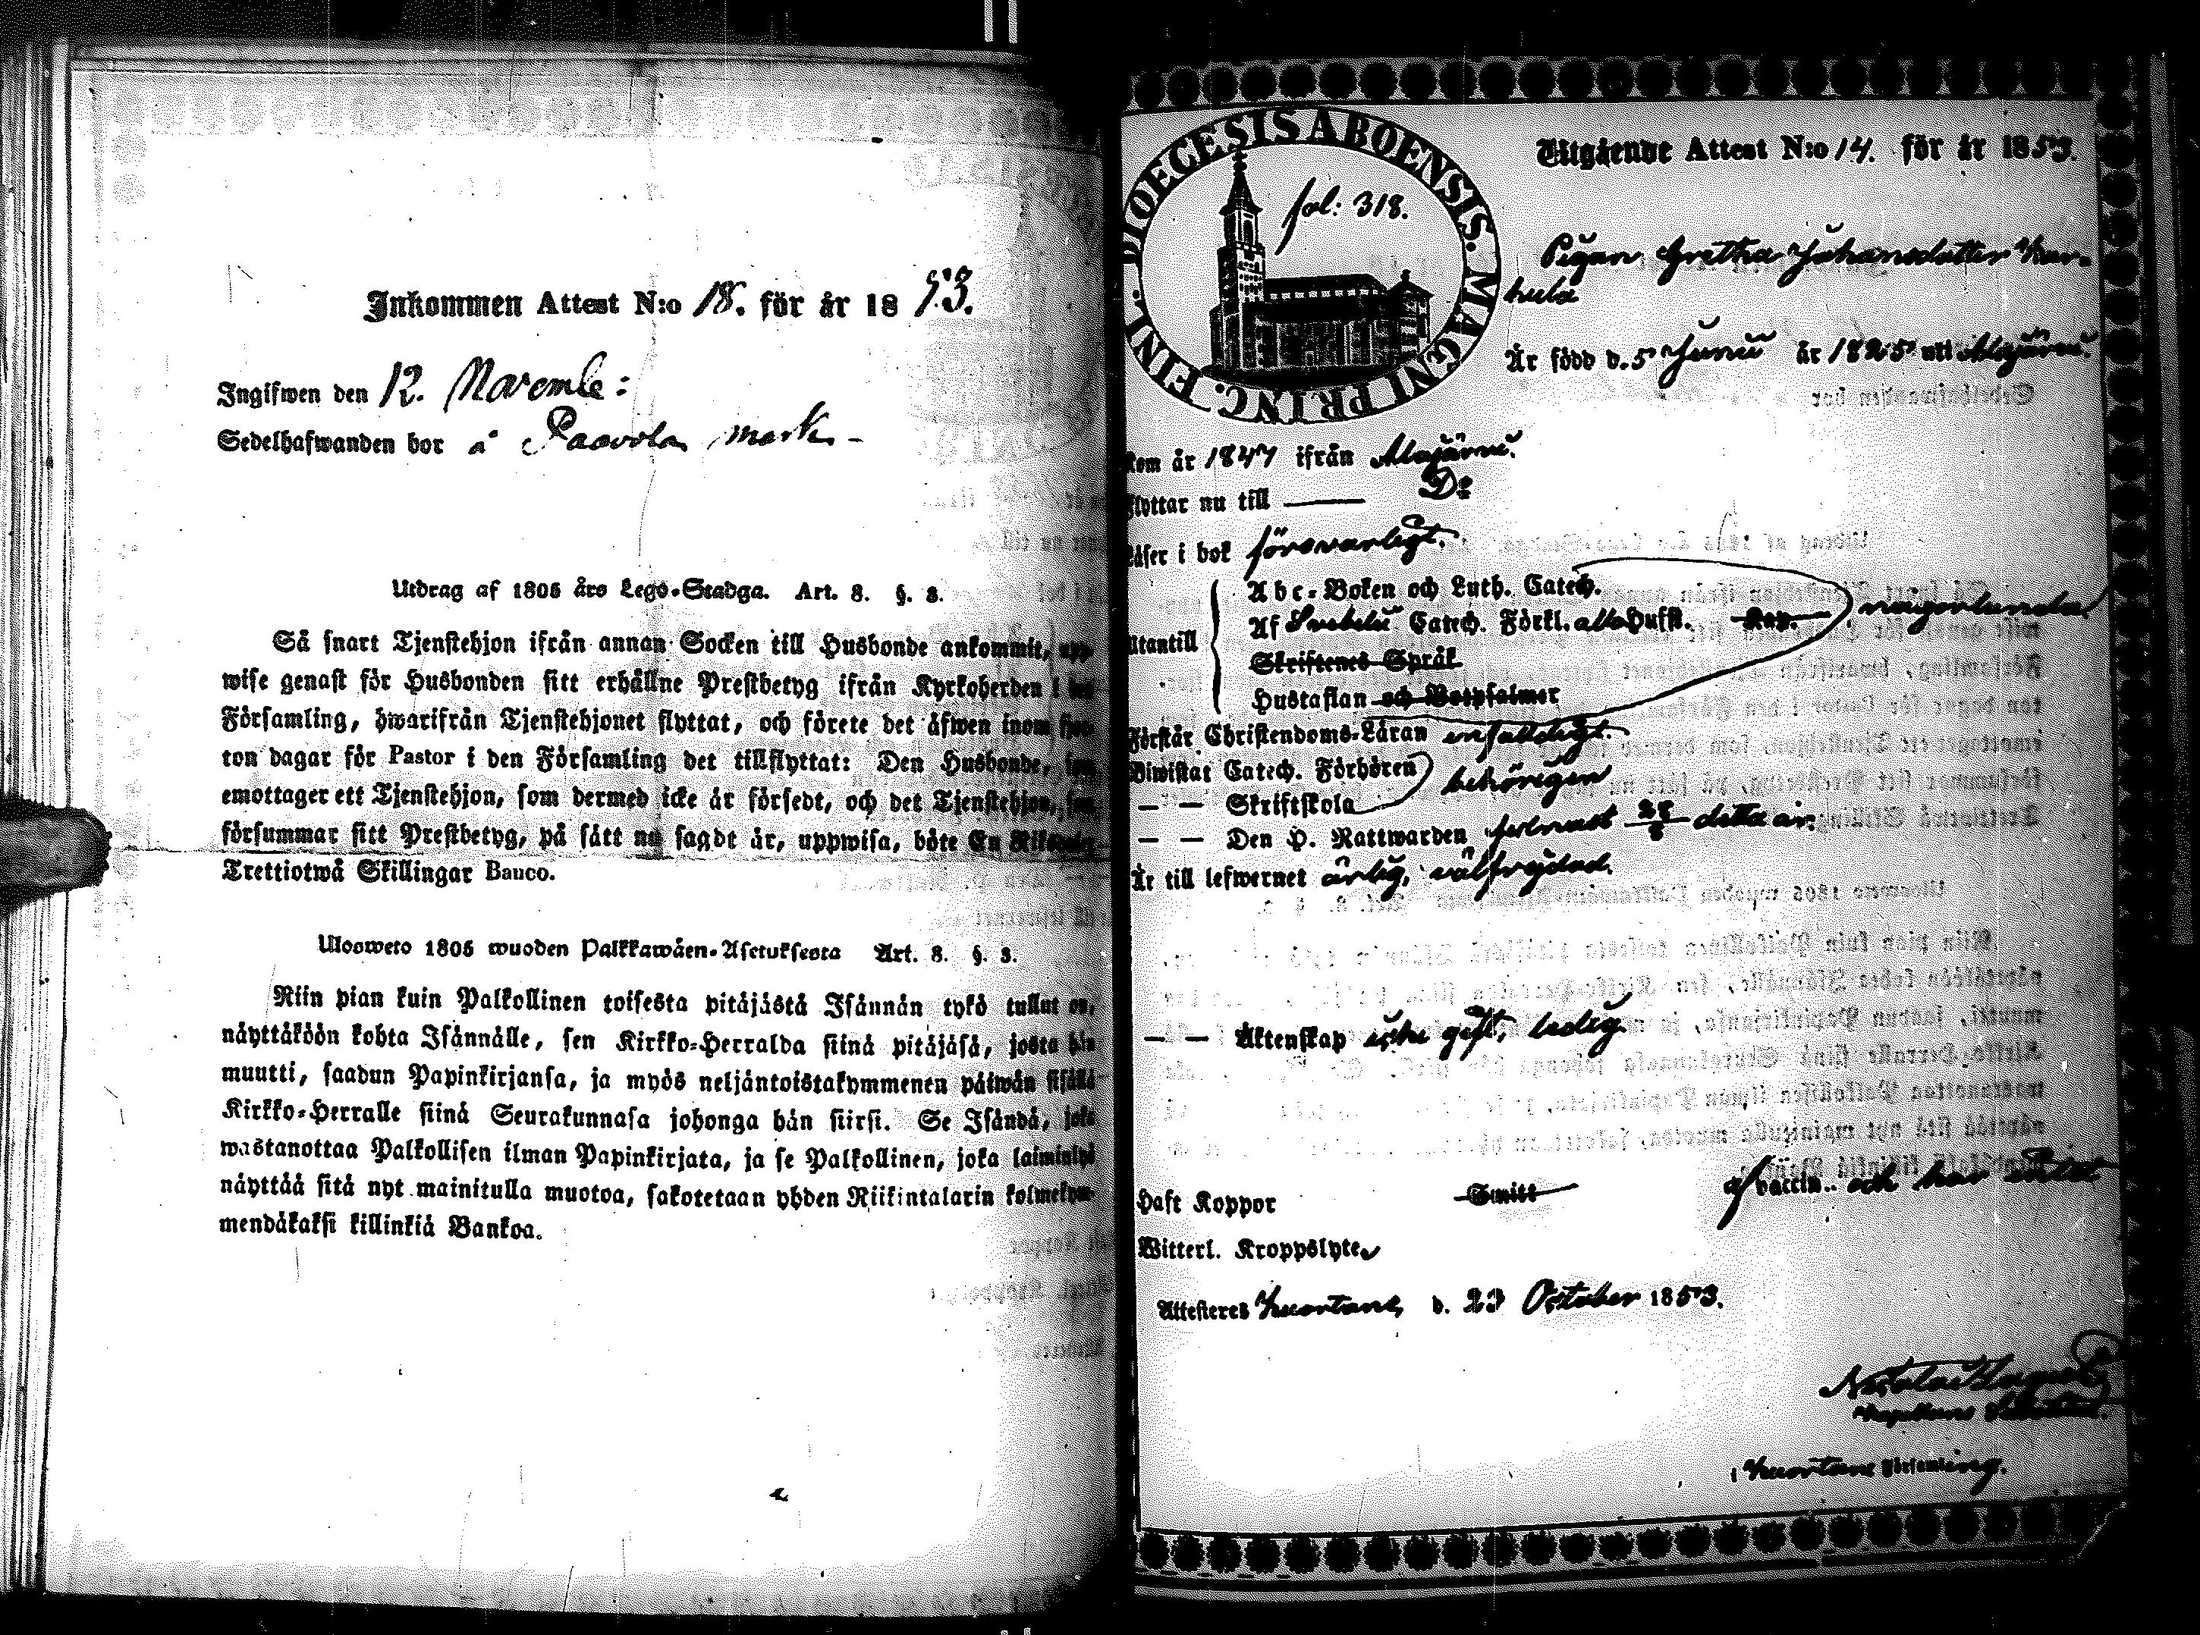 Inkommen Attest N:o 18. för år 1853.
Ingifwen den 12. Novemb:
Sedelhafwanden bor å Paavola mark
Utdrag af 1805 års Lego-Stadga. Art. 8. §. 3.
Så snart Tjenstehjon ifrån annan Socken till Husbonde ankommit, upp-
wise genast för Husbonden sitt erhållne Prestbetyg ifrån Kyrkoherden i den
Församling, hwarifrån Tjenstehjonet flyttat, och förete det äfwen inom fjor-
ton dagar för Pastor i den Församling det tillflyttat: Den Husbonde, som
emottager ett Tjenstehjon, som dermed icke är försedt, och det Tjenstehjon, som
försummar sitt Prestbetyg, på sätt nu sagdt är, uppwisa, böte En Riksdaler
Trettiotwå Skillingar Banco.
Ulosweto 1805 wuoden Palkkawäen-Asetuksesta Art. 8. §. 3.
Niin pian kuin Palkollinen toisesta pitäjästä Isännän tykö tullut on,
näyttäköön kohta Isännälle, sen Kirkko-Herralda siinä pitäjäsä, josta hän
muutti, saadun Papinkirjansa, ja myös neljäntoistakymmenen päiwän sisällä
Kirkko-Herralle siinä Seurakunnasa johonga hän siirsi. Se Isändä, joka
wastanottaa Palkollisen ilman Papinkirjata, ja se Palkollinen, joka laiminlyö
näyttää sitä nyt mainitulla muotoa, sakotetaan yhden Riikintalarin kolmekym-
mendäkaksi killinkiä Bankoa.
DIOECESIS ABOENSIS. MAGNI PRINC. FINL.
fol: 318.
Utgående Attest N:o 14. för år 1853.
Pigan Gretha Johansdotter Kar-
hula
Är född d. 5 Junii år 1825 uti Alajärvi.
Kom år 1847 ifrån Alajärvi.
Flyttar nu till —— D:o
Läser i bok försvarligt.
Abc-Boken och Luth. Catech.
Utantill Af Svebelii Catech. Förkl. alla Hufst. Kap. någorlunda
Skriftenes Språk
Hustaflan och Botpsalmer
Förstår Christendoms-Läran enfaldigt.
Biwistat Catech. Förhören behörigen
— — Skriftskola
— — Den H. Nattwarden sednast detta år.
Är till lefwernet ärlig, välfrejdad.
— — Äktenskap icke gift, ledig.
Haft Koppor Smitt af vaccin.. och har
Witterl. Kroppslyte
Attesteres Kuortane d. 23 October 1853.
i Kuortane Församling.